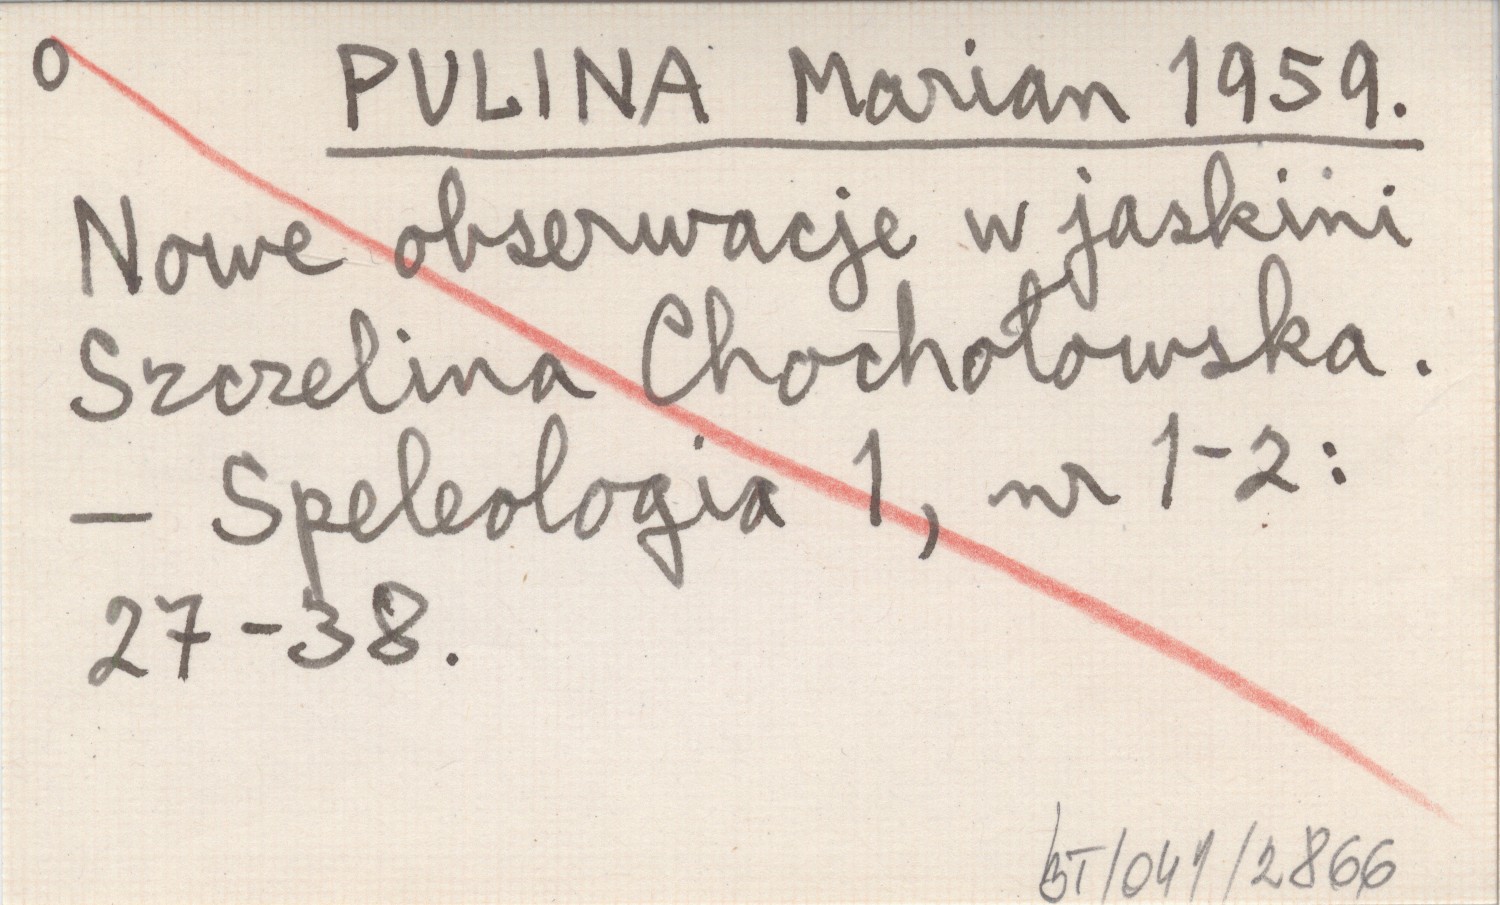 O PULINA Marian 1959.
Nowe obserwacje w jaskini
Szczelina Chochołowska.
— Speleologia 1, nr 1-2:
27-38.
BT/041/2866